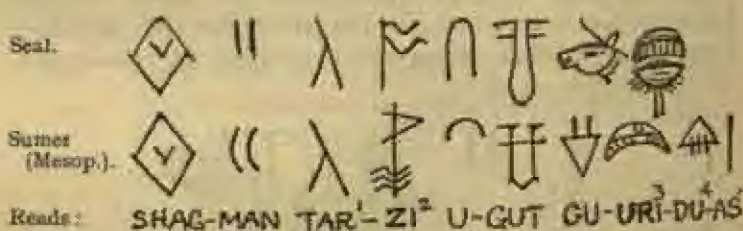 Seal.
Sumer
(Mesop.).
Reads: SHAG-MAN TAR¹-ZI² U-GUT GU-URI³-DU⁴-AŚ